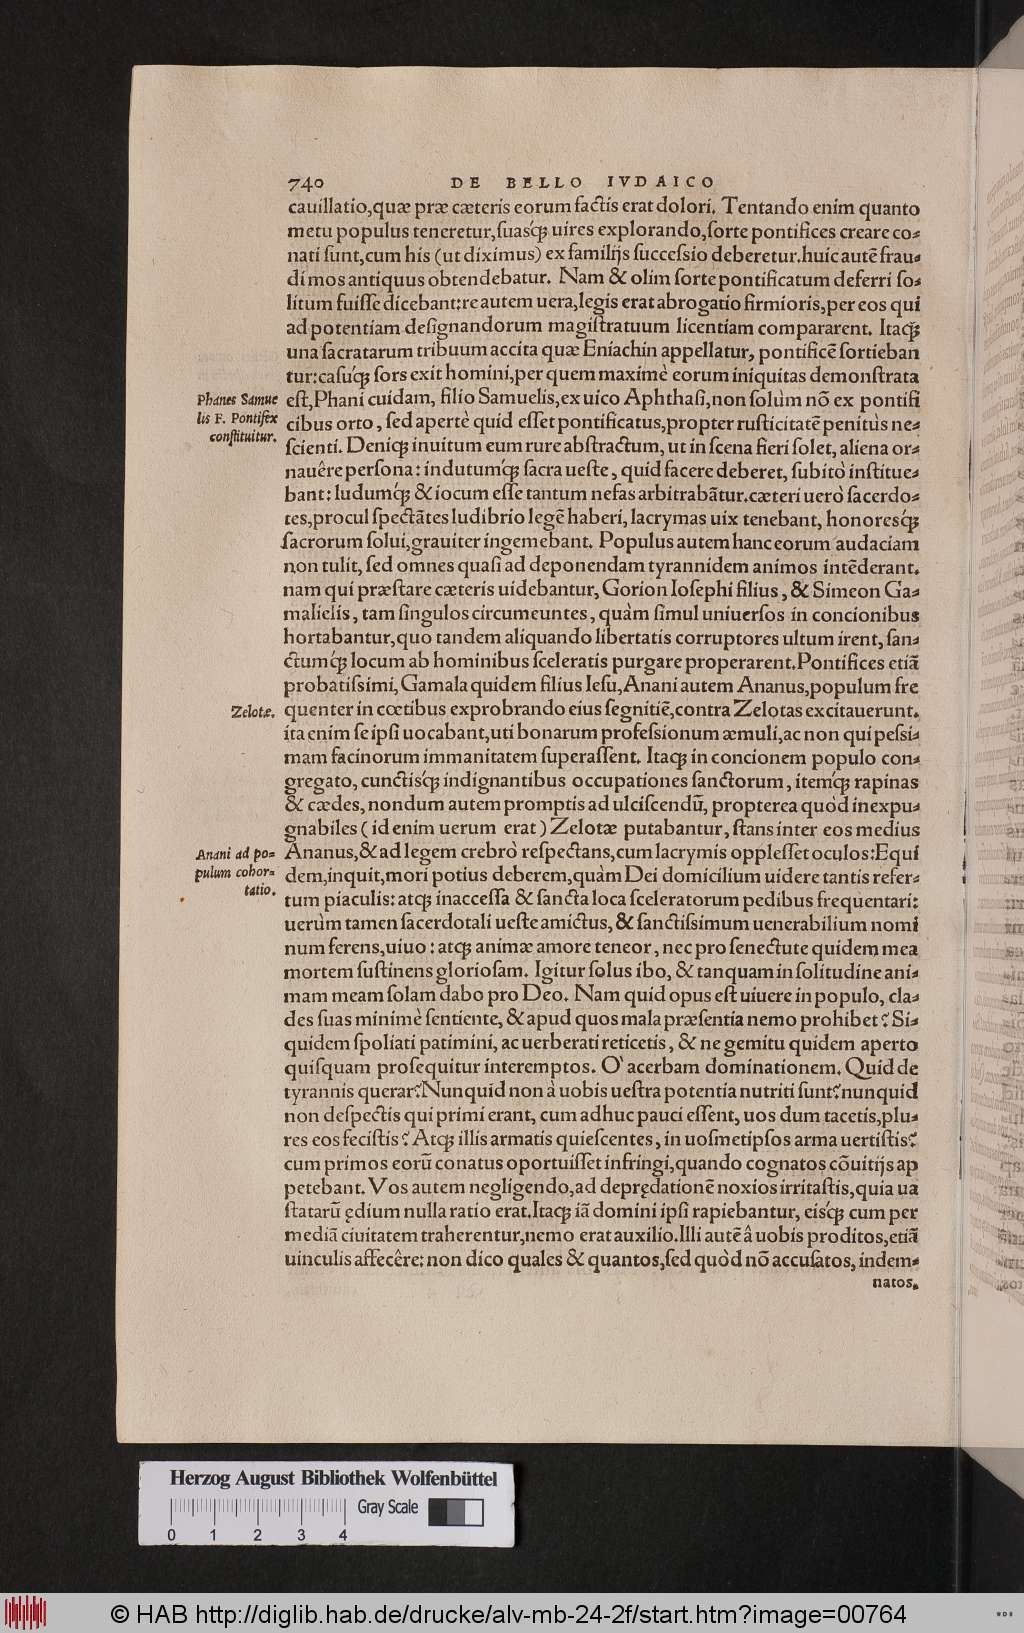 740 DE BELLO IVDAICO
cauillatio,quæ præ cæteris eorum factis erat dolori. Tentando enim quanto
metu populus teneretur,suasq́; uires explorando,sorte pontifices creare co-
nati sunt,cum his (ut diximus) ex familijs successio deberetur.huic autē frau-
di mos antiquus obtendebatur. Nam & olim sorte pontificatum deferri so-
litum fuisse dicebant:re autem uera,legis erat abrogatio firmioris,per eos qui
ad potentiam designandorum magistratuum licentiam compararent. Itaq́;
una sacratarum tribuum accita quæ Eniachin appellatur, pontificē sortieban
tur:casuq́; sors exit homini,per quem maximè eorum iniquitas demonstrata
Phanes Samue
lis F. Pontifex
constituitur.
est,Phani cuidam, filio Samuelis,ex uico Aphthasi,non solùm nō ex pontifi
cibus orto, sed apertè quid esset pontificatus,propter rusticitatē penitùs ne-
scienti. Deniq; inuitum eum rure abstractum, ut in scena fieri solet, aliena or-
nauêre persona: indutumq́; sacra ueste, quid facere deberet, subitò institue-
bant: ludumq́; & iocum esse tantum nefas arbitrabātur.cæteri uerò sacerdo-
tes,procul spectātes ludibrio legē haberi, lacrymas uix tenebant, honoresq́;
sacrorum solui,grauiter ingemebant. Populus autem hanc eorum audaciam
non tulit, sed omnes quasi ad deponendam tyrannidem animos intēderant.
nam qui præstare cæteris uidebantur, Gorion Iosephi filius, & Simeon Ga-
malielis, tam singulos circumeuntes, quàm simul uniuersos in concionibus
hortabantur,quo tandem aliquando libertatis corruptores ultum irent, san-
ctumq́; locum ab hominibus sceleratis purgare properarent.Pontifices etiā
probatissimi, Gamala quidem filius Iesu, Anani autem Ananus,populum fre
Zelotæ.
quenter in cœtibus exprobrando eius segnitiē,contra Zelotas excitauerunt.
ita enim se ipsi uocabant,uti bonarum professionum æmuli,ac non qui pessi-
mam facinorum immanitatem superassent. Itaq; in concionem populo con-
gregato, cunctisq́; indignantibus occupationes sanctorum, itemq́; rapinas
& cædes, nondum autem promptis ad ulciscendū, propterea quòd inexpu-
gnabiles (id enim uerum erat) Zelotæ putabantur, stans inter eos medius
Anani ad po-
pulum cohor-
tatio.
Ananus,& ad legem crebrò respectans,cum lacrymis opplesset oculos:Equi
dem,inquit,mori potius deberem,quàm Dei domicilium uidere tantis refer-
tum piaculis: atq; inaccessa & sancta loca sceleratorum pedibus frequentari:
uerùm tamen sacerdotali ueste amictus, & sanctissimum uenerabilium nomi
num ferens,uiuo: atq; animæ amore teneor, nec pro senectute quidem mea
mortem sustinens gloriosam. Igitur solus ibo, & tanquam in solitudine ani-
mam meam solam dabo pro Deo. Nam quid opus est uiuere in populo, cla-
des suas minimè sentiente, & apud quos mala præsentia nemo prohibet? Si-
quidem spoliati patimini, ac uerberati reticetis, & ne gemitu quidem aperto
quisquam prosequitur interemptos. O' acerbam dominationem. Quid de
tyrannis querar? Nunquid non à uobis uestra potentia nutriti sunt? nunquid
non despectis qui primi erant, cum adhuc pauci essent, uos dum tacetis,plu-
res eos fecistis? Atq; illis armatis quiescentes, in uosmetipsos arma uertistis?
cum primos eorū conatus oportuisset infringi,quando cognatos cōuitijs ap
petebant. Vos autem negligendo,ad deprędationē noxios irritastis,quia ua
statarū ędium nulla ratio erat.Itaq; iā domini ipsi rapiebantur, eisq́; cum per
mediā ciuitatem traherentur,nemo erat auxilio.Illi autē â uobis proditos,etiā
uinculis affecêre: non dico quales & quantos,sed quòd nō accusatos, indem-
natos.
Herzog August Bibliothek Wolfenbüttel
Gray Scale
0 1 2 3 4
© HAB http://diglib.hab.de/drucke/alv-mb-24-2f/start.htm?image=00764